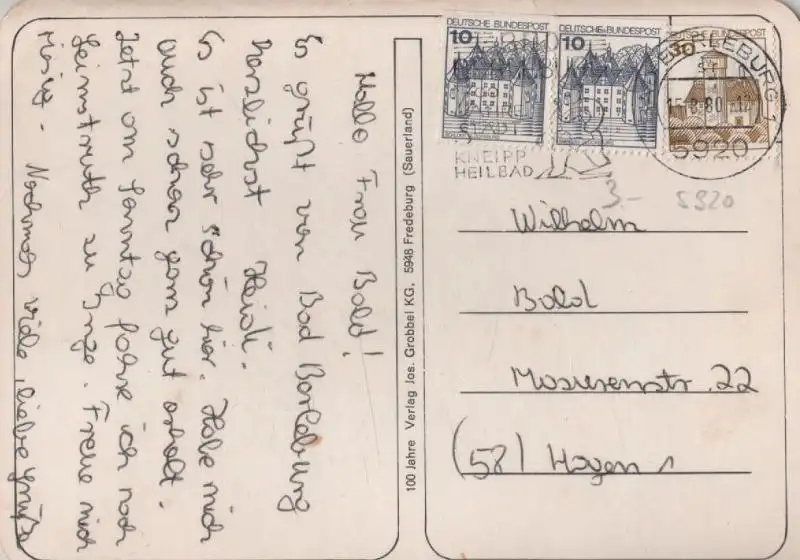 Hallo Frau Bald!
Es grüßt von Bad Berleburg
herzlichst Heidi.
Es ist sehr schön hier. Habe mich
auch schon ganz gut erholt.
Jetzt am Sonntag fahre ich nach
zu Inge. Freue mich
riesig. Nochmals viele, liebe Grüße
100 Jahre Verlag Jos. Grobbel KG, 5948 Fredeburg (Sauerland)
DEUTSCHE BUNDESPOST
10
DEUTSCHE BUNDESPOST
10
30
BERLEBURG 1
80
5920
STADT
KNEIPP
HEILBAD
3.- 5920
Wilhelm
Bald
Masurenstr. 22
(58) Hagen 1